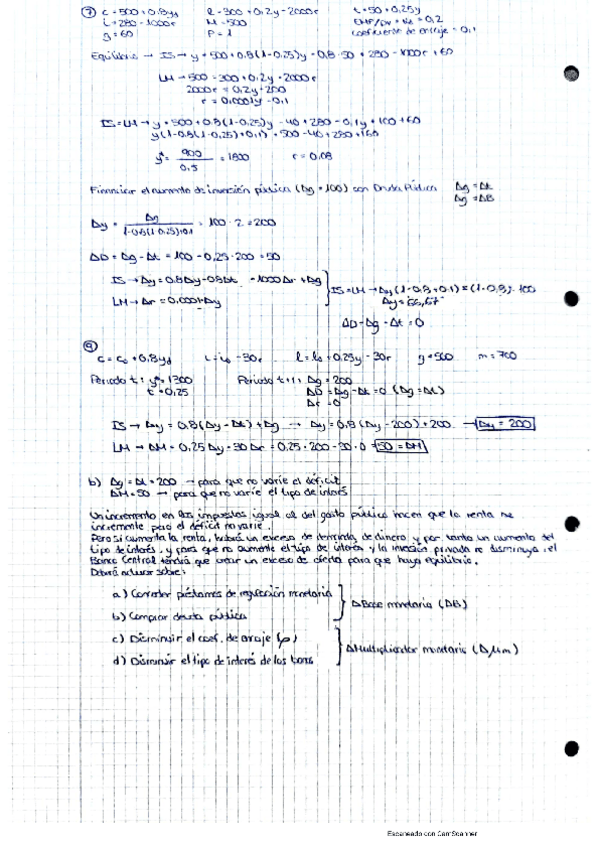 ⑦ c = 500 + 0,8yd    l = 300 + 0,2y - 2000r    t = 50 + 0,25y
i = 280 - 1000r    M = 500
g = 60    P = 1    coeficiente de encaje = 0,1
Equilibrio → IS → y = 500 + 0,8(1-0,25)y - 0,8·50 + 280 - 1000r + 60
LM → 500 = 300 + 0,2y - 2000r
2000r = 0,2y - 200
r = 0,0001y - 0,1
IS=LM → y = 500 + 0,8(1-0,25)y - 40 + 280 - 0,1y + 100 + 60
y(1-0,8(1-0,25)+0,1) = 500 - 40 + 280 + 160
y* = 900 / 0,5 = 1800    r = 0,08
Financiar el aumento de inversión pública (Δg = 100) con Deuda Pública    Δg = Δt
Δg = ΔB
Δy = Δg / 1-0,8(1-0,25)+0,1 = 100 · 2 = 200
ΔD = Δg - Δt = 100 - 0,25·200 = 50
IS → Δy = 0,8Δy - 0,8Δt - 1000Δr + Δg
LM → Δr = 0,0001Δy
IS=LM → Δy(1-0,8+0,1) = (1-0,8)·100
Δy = 66,67
ΔD = Δg - Δt = 0
⑨
c = c₀ + 0,8yd    i = i₀ - 30r    l = l₀ + 0,25y - 30r    g = 500    m = 700
Periodo t: y* = 1300    Periodo t+1: Δg = 200
t = 0,25    ΔD = Δg - Δt = 0 (Δg = Δt)
Δr = 0
IS → Δy = 0,8(Δy - Δt) + Δg → Δy = 0,8(Δy - 200) + 200 → Δy = 200
LM → ΔM = 0,25Δy - 30Δr = 0,25·200 - 30·0 → 50 = ΔM
b) Δg = Δt = 200 → para que no varíe el déficit
ΔM = 50 → para que no varíe el tipo de interés
Un incremento en los impuestos igual al del gasto público hacen que la renta se
incremente pero el déficit no varíe.
Pero si aumenta la renta, habrá un exceso de demanda de dinero y por tanto un aumento del
tipo de interés, y para que no aumente el tipo de interés y la inversión privada no disminuya, el
Banco Central tendrá que crear un exceso de oferta para que haya equilibrio.
Deberá actuar sobre:
a) Conceder préstamos de regulación monetaria
b) Comprar deuda pública
ΔBase monetaria (ΔB)
c) Disminuir el coef. de encaje (ρ)
d) Disminuir el tipo de interés de los
ΔMultiplicador monetario (Δμm)
Escaneado con CamScanner